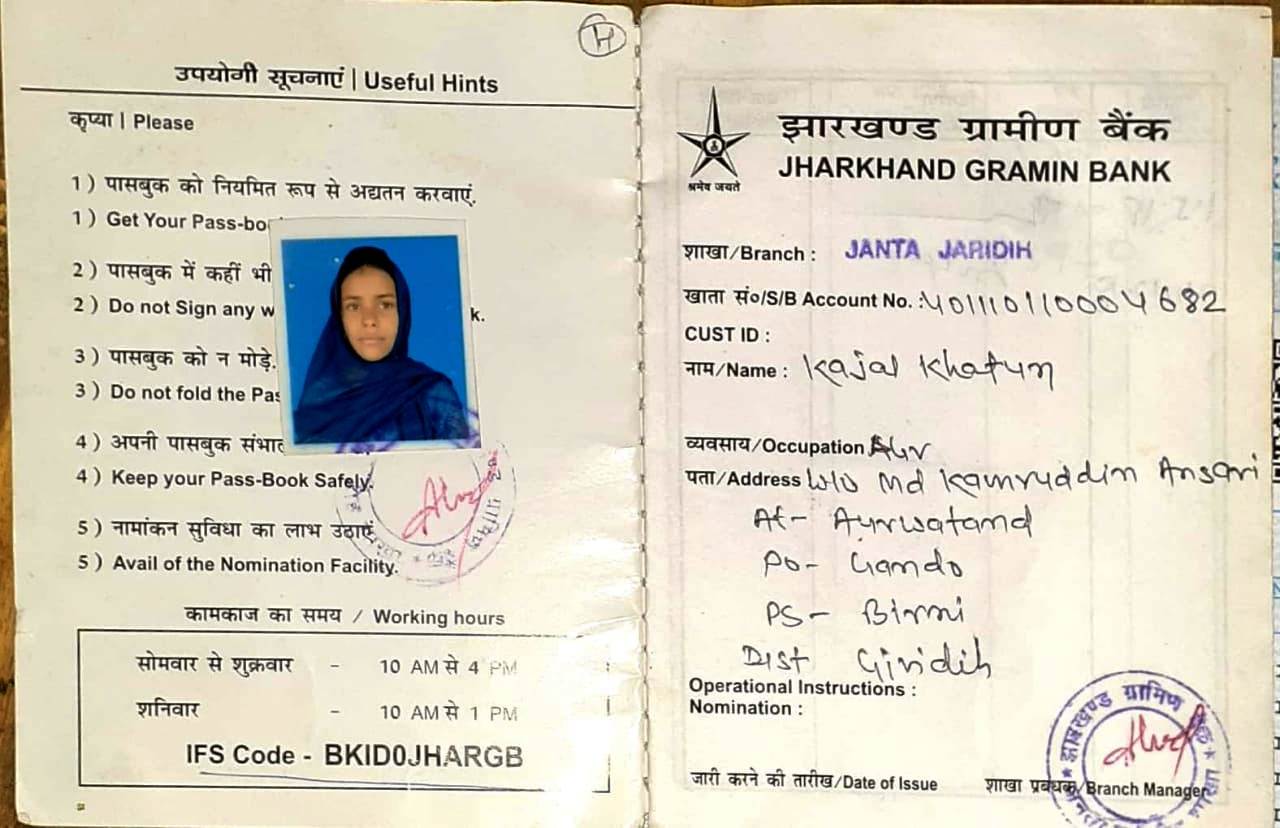 H
उपयोगी सूचनाएं | Useful Hints
कृप्या | Please
1 ) पासबुक को नियमित रूप से अद्यतन करवाएं.
1 ) Get Your Pass-bo
2 ) पासबुक में कहीं भी
2 ) Do not Sign any w k.
3 ) पासबुक को न मोड़े.
3 ) Do not fold the Pas
4 ) अपनी पासबुक संभाल
4 ) Keep your Pass-Book Safely.
5 ) नामांकन सुविधा का लाभ उठाएं
5 ) Avail of the Nomination Facility.
कामकाज का समय / Working hours
सोमवार से शुक्रवार - 10 AM से 4 PM
शनिवार - 10 AM से 1 PM
IFS Code - BKID0JHARGB
झारखण्ड ग्रामीण बैंक
JHARKHAND GRAMIN BANK
श्रमेव जयते
शाखा/Branch : JANTA JARIDIH
खाता सं०/S/B Account No. : 401110110004682
CUST ID :
नाम/Name : Kajal Khatun
व्यवसाय/Occupation
पता/Address W/o Md Kamruddin Ansari
At- Ayrwatand
PO- Gando
PS- Birni
Dist Giridih
Operational Instructions :
Nomination :
जारी करने की तारीख/Date of Issue
शाखा प्रबंधक/Branch Manager
झारखण्ड ग्रामिण